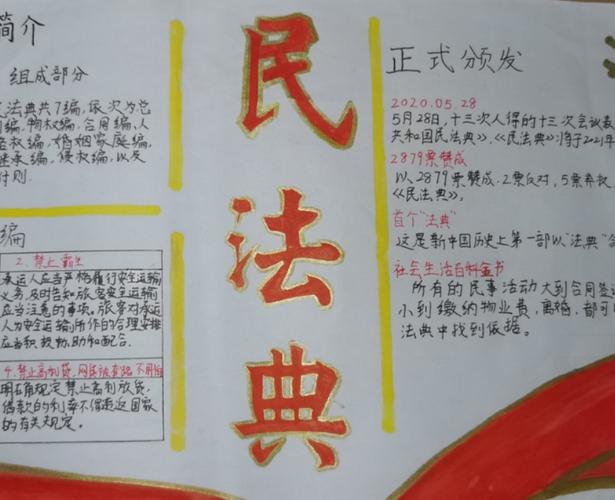 简介
组成部分
法典共7编,依次为总
编,物权编,合同编,人
格权编,婚姻家庭编,
继承编,侵权编,以及
附则.
编
2.禁止霸座
承运人应当严格履行安全运输
义务,及时告知旅客安全运输
应当注意的事项。旅客对承运
人为安全运输所作的合理安排
应当积极协助和配合.
4.禁止高利贷,
明确规定禁止高利放贷,
借款的利率不得违反国家
的有关规定。
民
法
典
正式颁发
2020.05.28
5月28日,十三次人得的十三次会议表
共和国民法典》,《民法典》将于2021年
2879票赞成
以2879票赞成,2票反对,5票弃权,
《民法典》。
首个“法典”
这是新中国历史上第一部以“法典”命
社会生活百科全书
所有的民事活动大到合同签
小到缴纳物业费,离婚,都可
法典中找到依据。